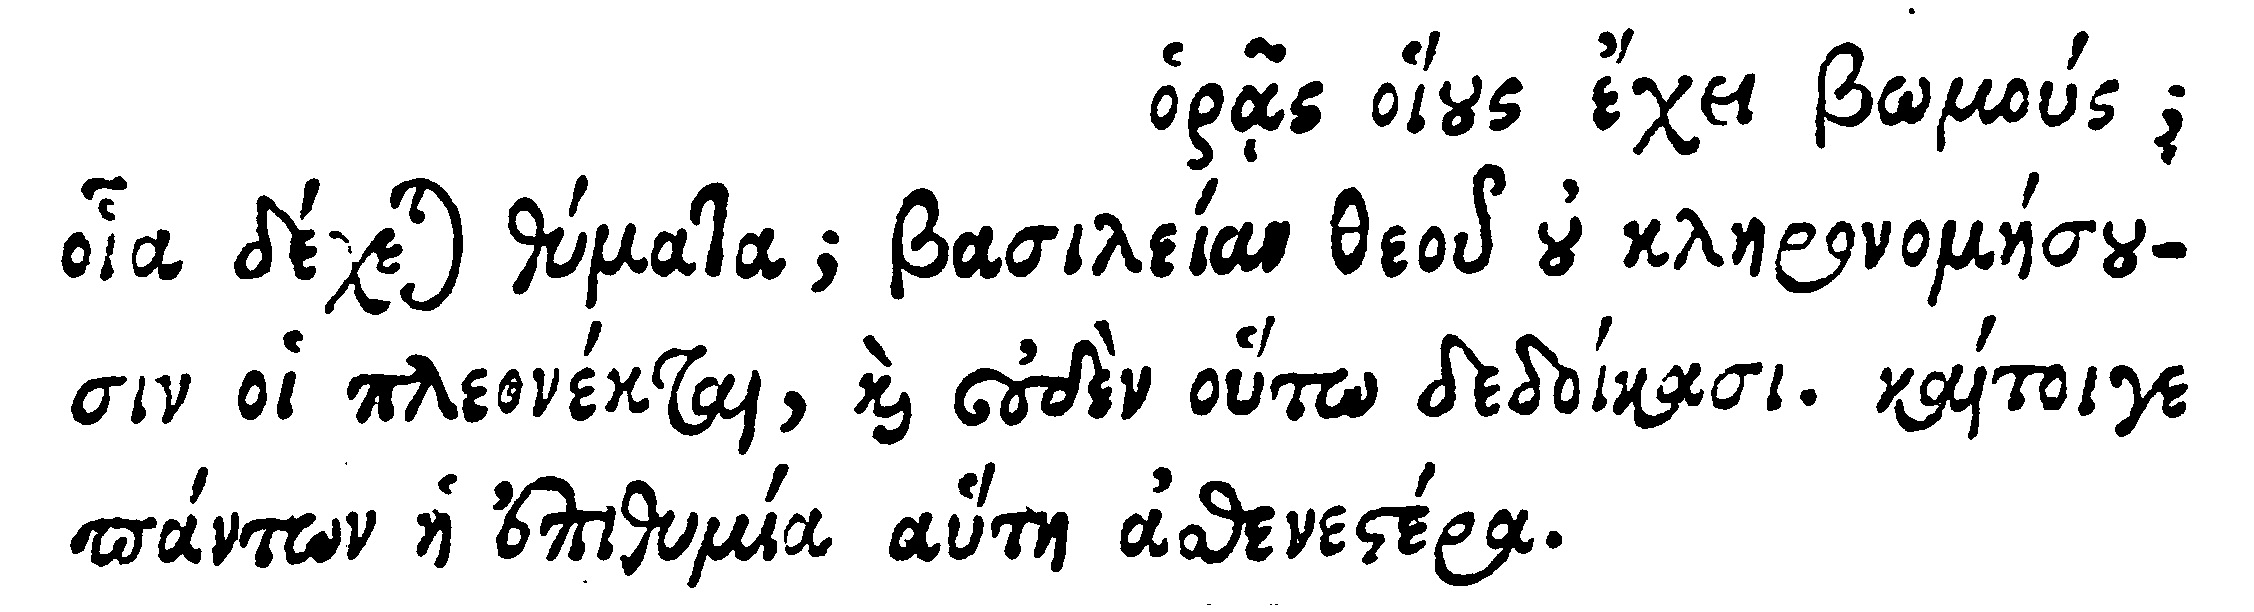 ὁρᾷς οἵους ἔχει βωμούς;
οἷα δέχεται θύματα; βασιλείαν θεοῦ οὐ κληρονομήσου-
σιν οἱ πλεονέκται, καὶ οὐδὲν οὕτω δεδοίκασι. καίτοιγε
πάντων ἡ ἐπιθυμία αὕτη ἀσθενεστέρα.